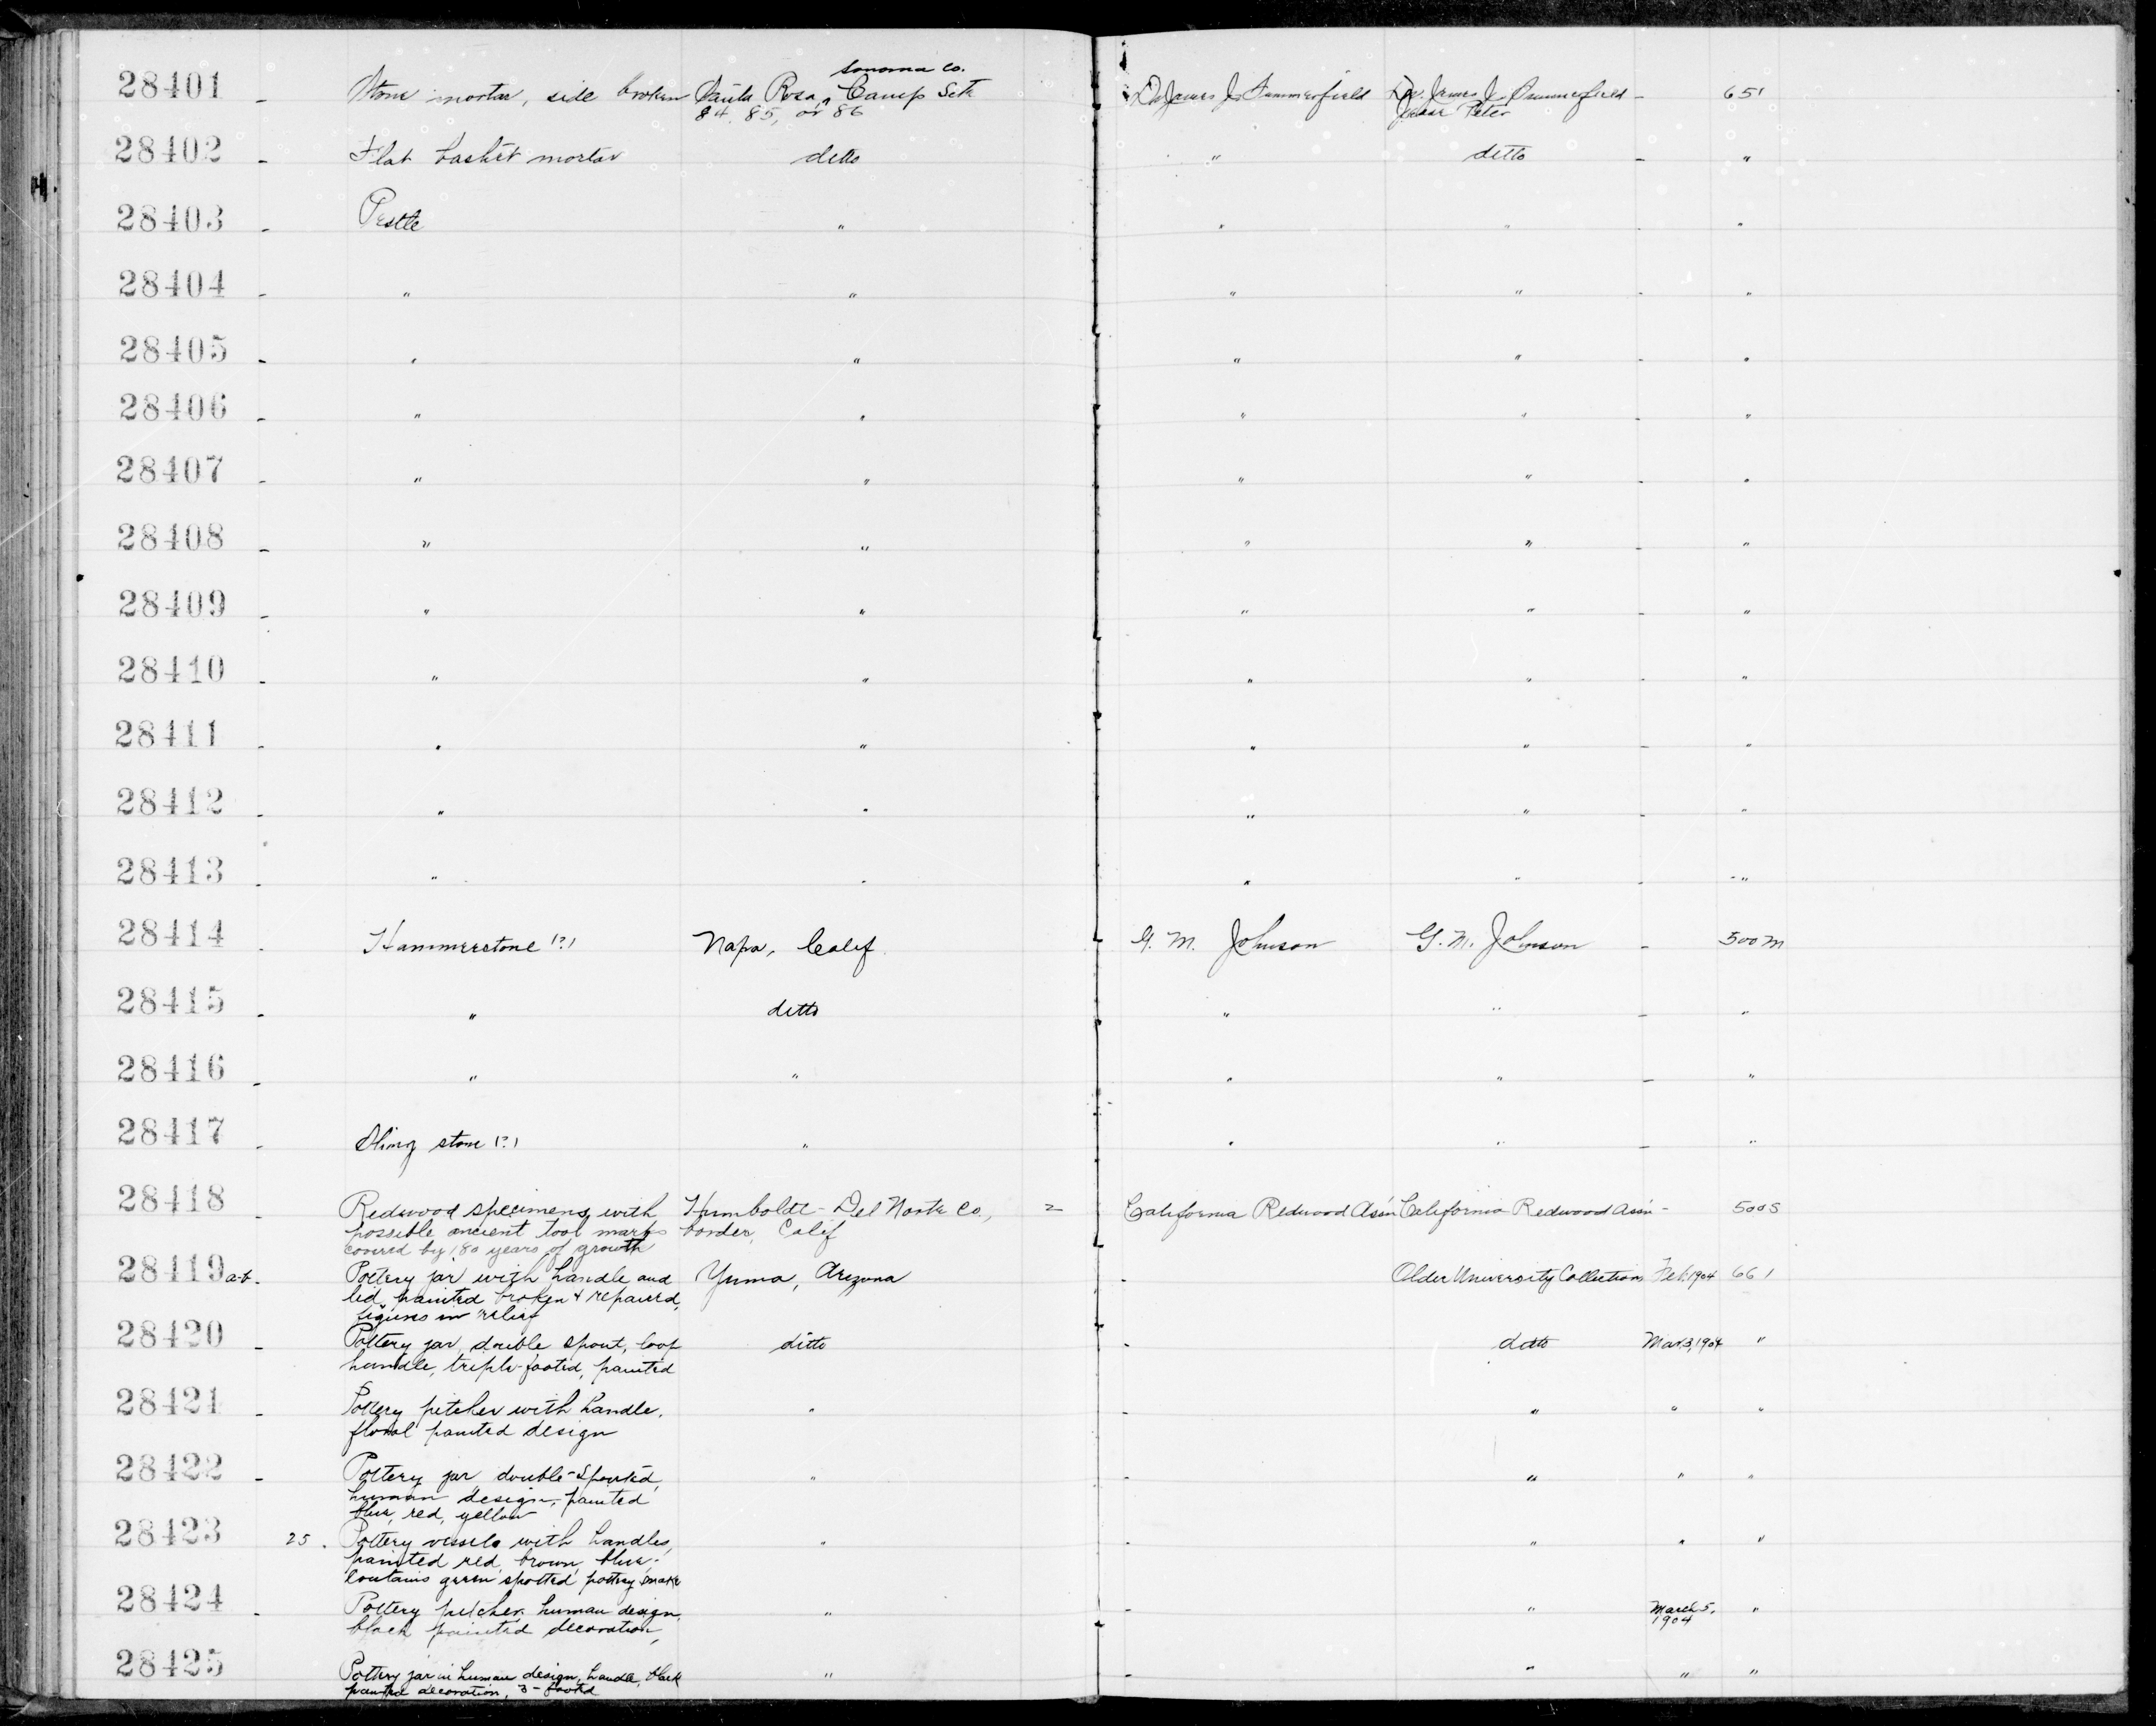 28401 - Stone mortar, side broken Santa Rosa, Sonoma Co. Camp Site Dr James J. Summerfield Dr. James J. Summerfield - 651
84, 85, or 86 Jesse Peter
28402 - Flat basket mortar ditto " ditto - "
28403 - Pestle " " " - "
28404 - " " " " - "
28405 - " " " " - "
28406 - " " " " - "
28407 - " " " " - "
28408 - " " " " - "
28409 - " " " " - "
28410 - " " " " - "
28411 - " " " " - "
28412 - " " " " - "
28413 - " " " " - "
28414 - Hammerstone (?) Napa, Calif. G. M. Johnson G. M. Johnson - 500M
28415 - " ditto " " - "
28416 - " " " " - "
28417 - Sling stone (?) " " " - "
28418 - Redwood specimens with Humboldt - Del Norte Co., 2 California Redwood Ass'n California Redwood Ass'n - 500S
possible ancient tool marks border, Calif
covered by 180 years of growth
28419 a-b - Pottery jar with handle and Yuma, Arizona - Older University Collections Feb. 1904 661
lid, painted broken & repaired,
figures in relief
28420 - Pottery jar, double spout, loop ditto - ditto Mar 3, 1904 "
handle, triple-footed, painted
28421 - Pottery pitcher with handle, " - " " "
floral painted design
28422 - Pottery jar double-spouted, " - " " "
human design, painted
blue, red, yellow
28423 25. Pottery vessels with handles, " - " " "
painted red, brown, blue;
contains green spotted pottery snake
28424 - Pottery pitcher, human design, " - " March 5, "
black painted decoration, 1904
28425 - Pottery jar in human design, handle, black " - " " "
painted decoration, 3-footed